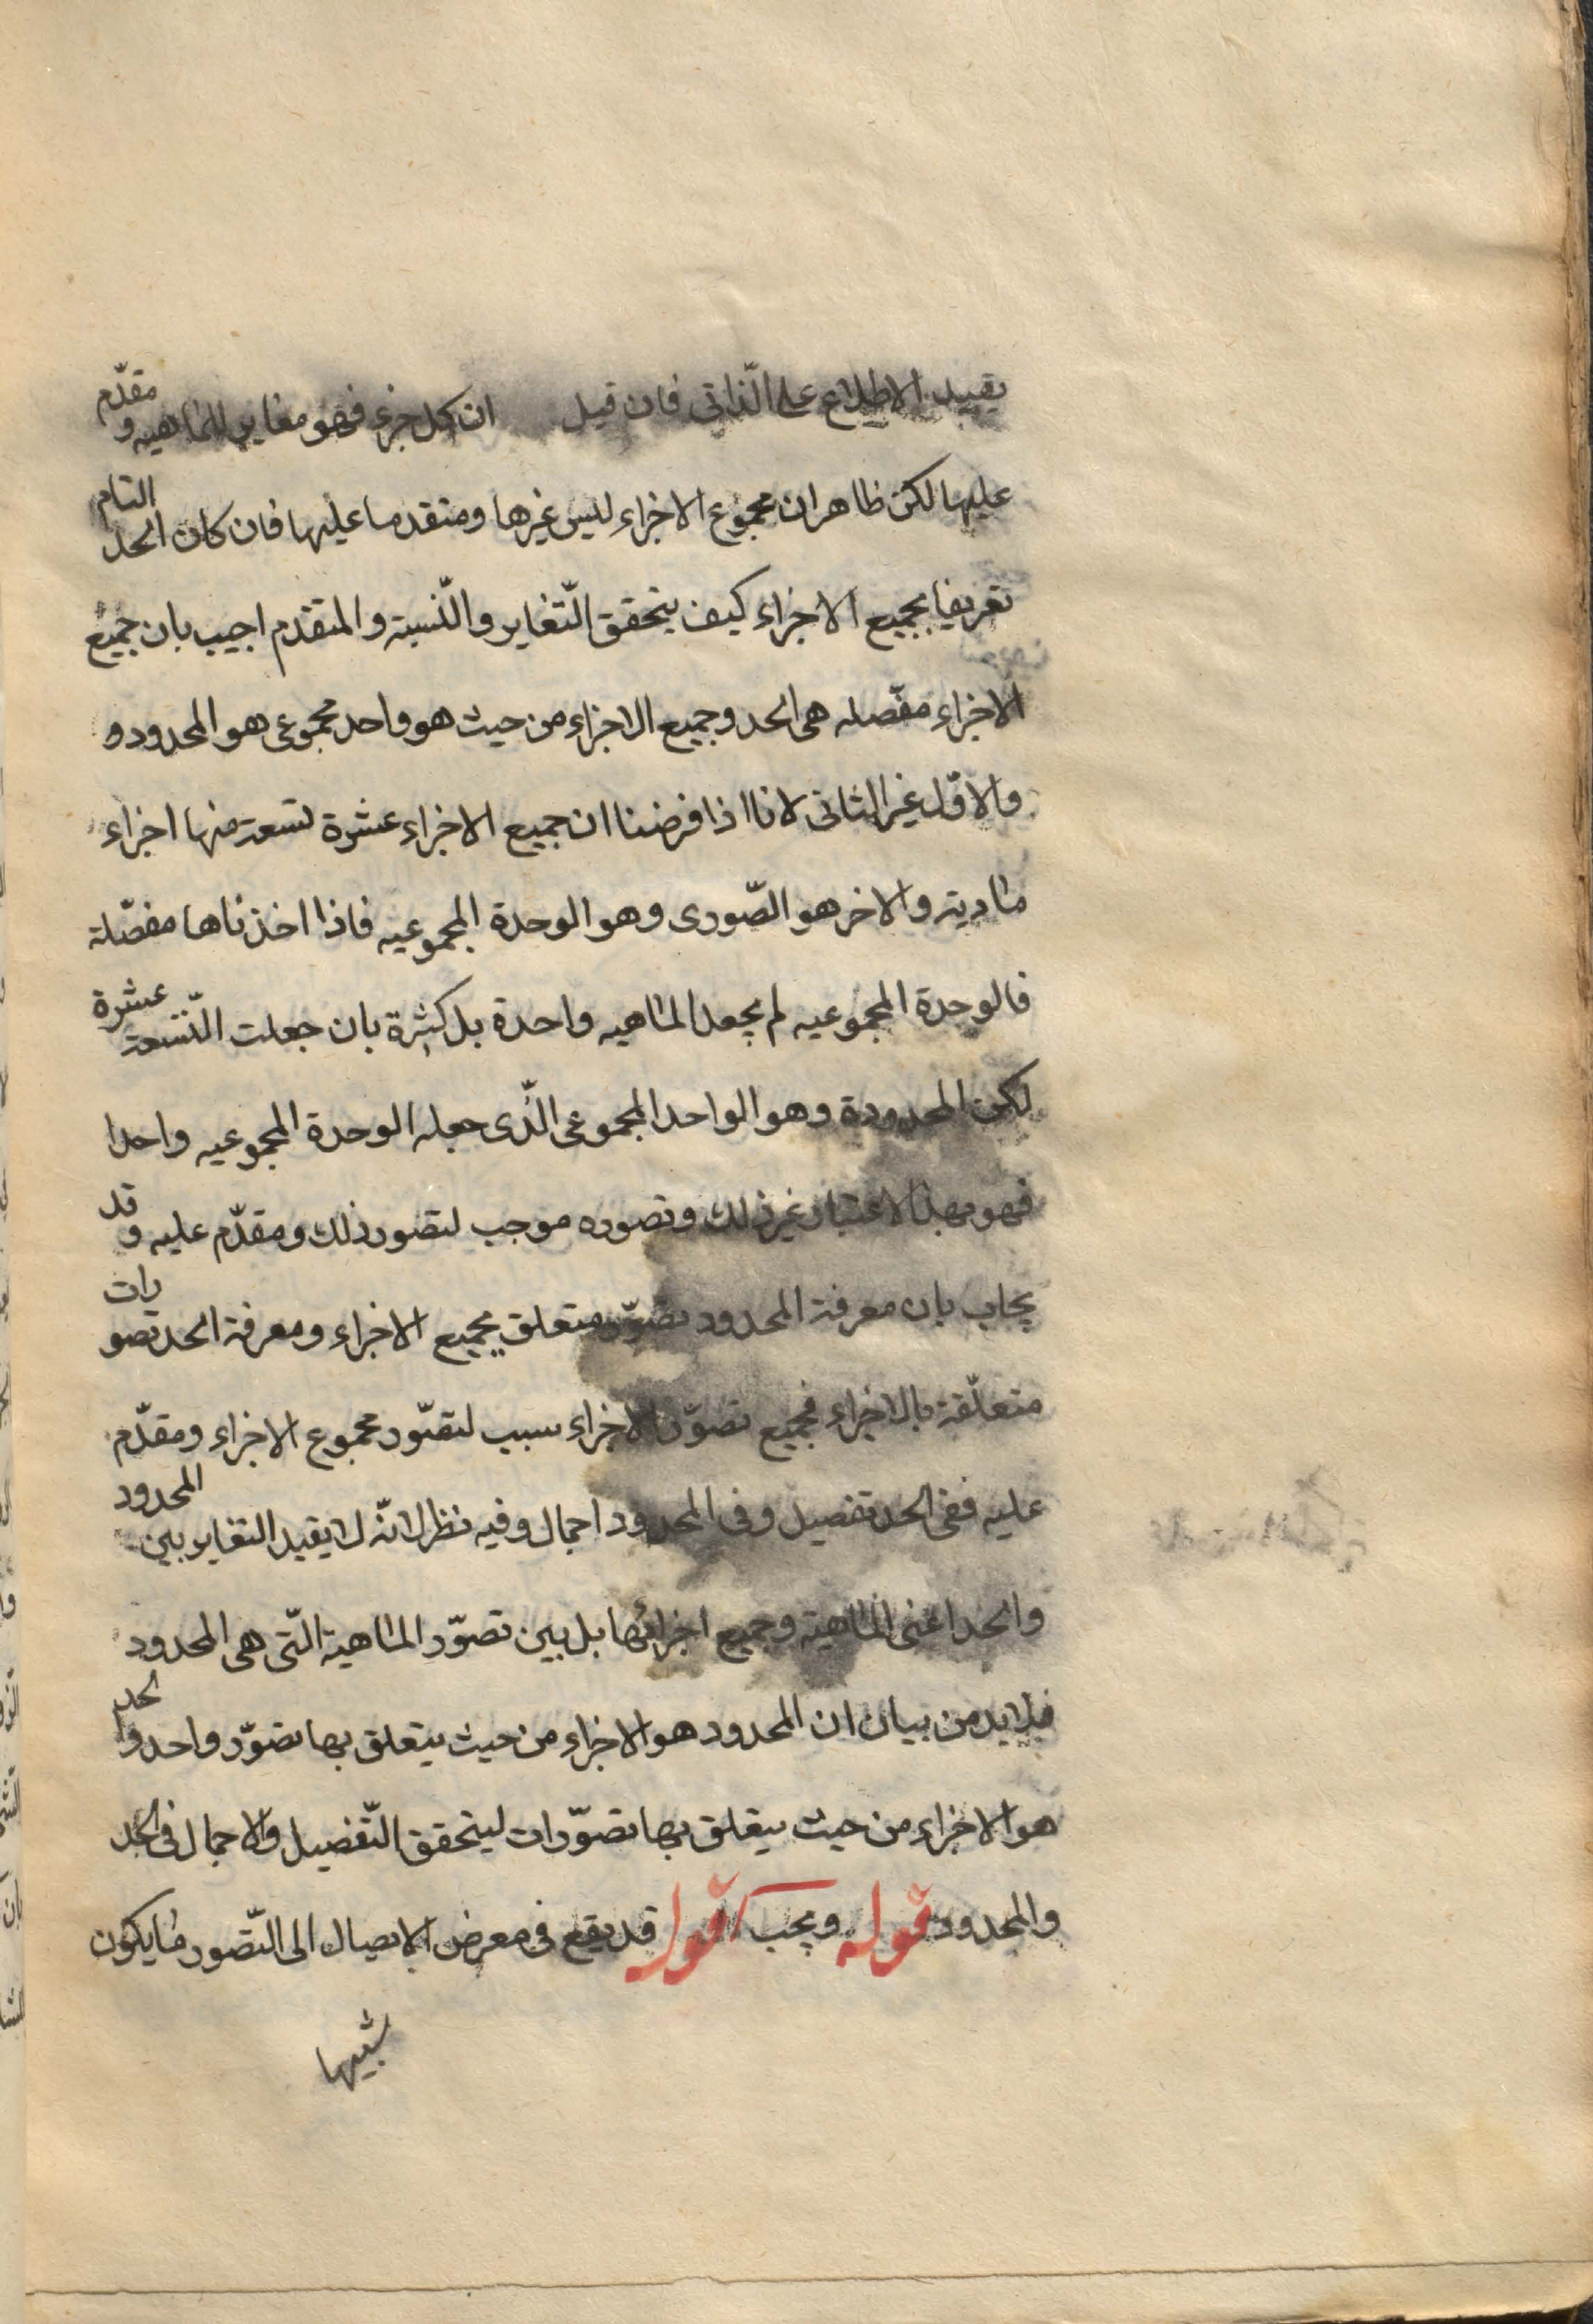 يفيد الاطلاع على الذّاتى فان قيل ان كل جزء فهو مغاير للماهيه و مقدّم
عليها لكن ظاهر ان مجموع الاجزاء ليس غيرها ومتقدما عليها فان كان الحد التام
تعريفا بجميع الاجزاء كيف يتحقق التّغاير والنّسبة والمتقدّم اجيب بان جميع
الاجزاء مفّصله هى الحد وجميع الاجزاء من حيث هو واحد مجموعى هو المحدود و
والاوّل غير الثانى لانا اذا فرضنا ان جميع الاجزاء عشرة تسعة منها اجزاء
مادية والاخر هو الصّورى وهو الوحدة المجموعيه فاذا اخذناها مفصّلة
فالوحدة المجموعيه لم يجعل الماهيه واحدة بل كثرة بان جعلت التّسعة عشرة
لكن المحدودة وهو الواحد المجموعى الّذى جعله الوحدة المجموعيه واحدا
فهو بهذا الاعتبار غير ذلك وتصوره موجب لتصور ذلك ومقدّم عليه و قد
يجاب بان معرفة المحدود تصوّر متعلق بجميع الاجزاء ومعرفة الحد تصو رات
متعلّقة بالاجزاء فجميع تصوّر الاجزاء سبب لتصّور مجموع الاجزاء ومقدّم
عليه ففى الحد تفصيل وفى المحدود اجمال وفيه نظر لانّه لا يفيد التغاير بين المحدود
والحد اعنى الماهية وجميع اجزائها بل بين تصوّر الماهية الّتى هى المحدود
فلا بد من بيان ان المحدود هو الاجزاء من حيث يتعلق بها تصوّر واحد والحد
هو الاجزاء من حيث يتعلق بها تصوّرات ليتحقق التّفصيل والاجمال فى الحد
والمحدود قوله ويجب اقول قد يقع فى معرض الايصال الى التّصور ما يكون
شبيها